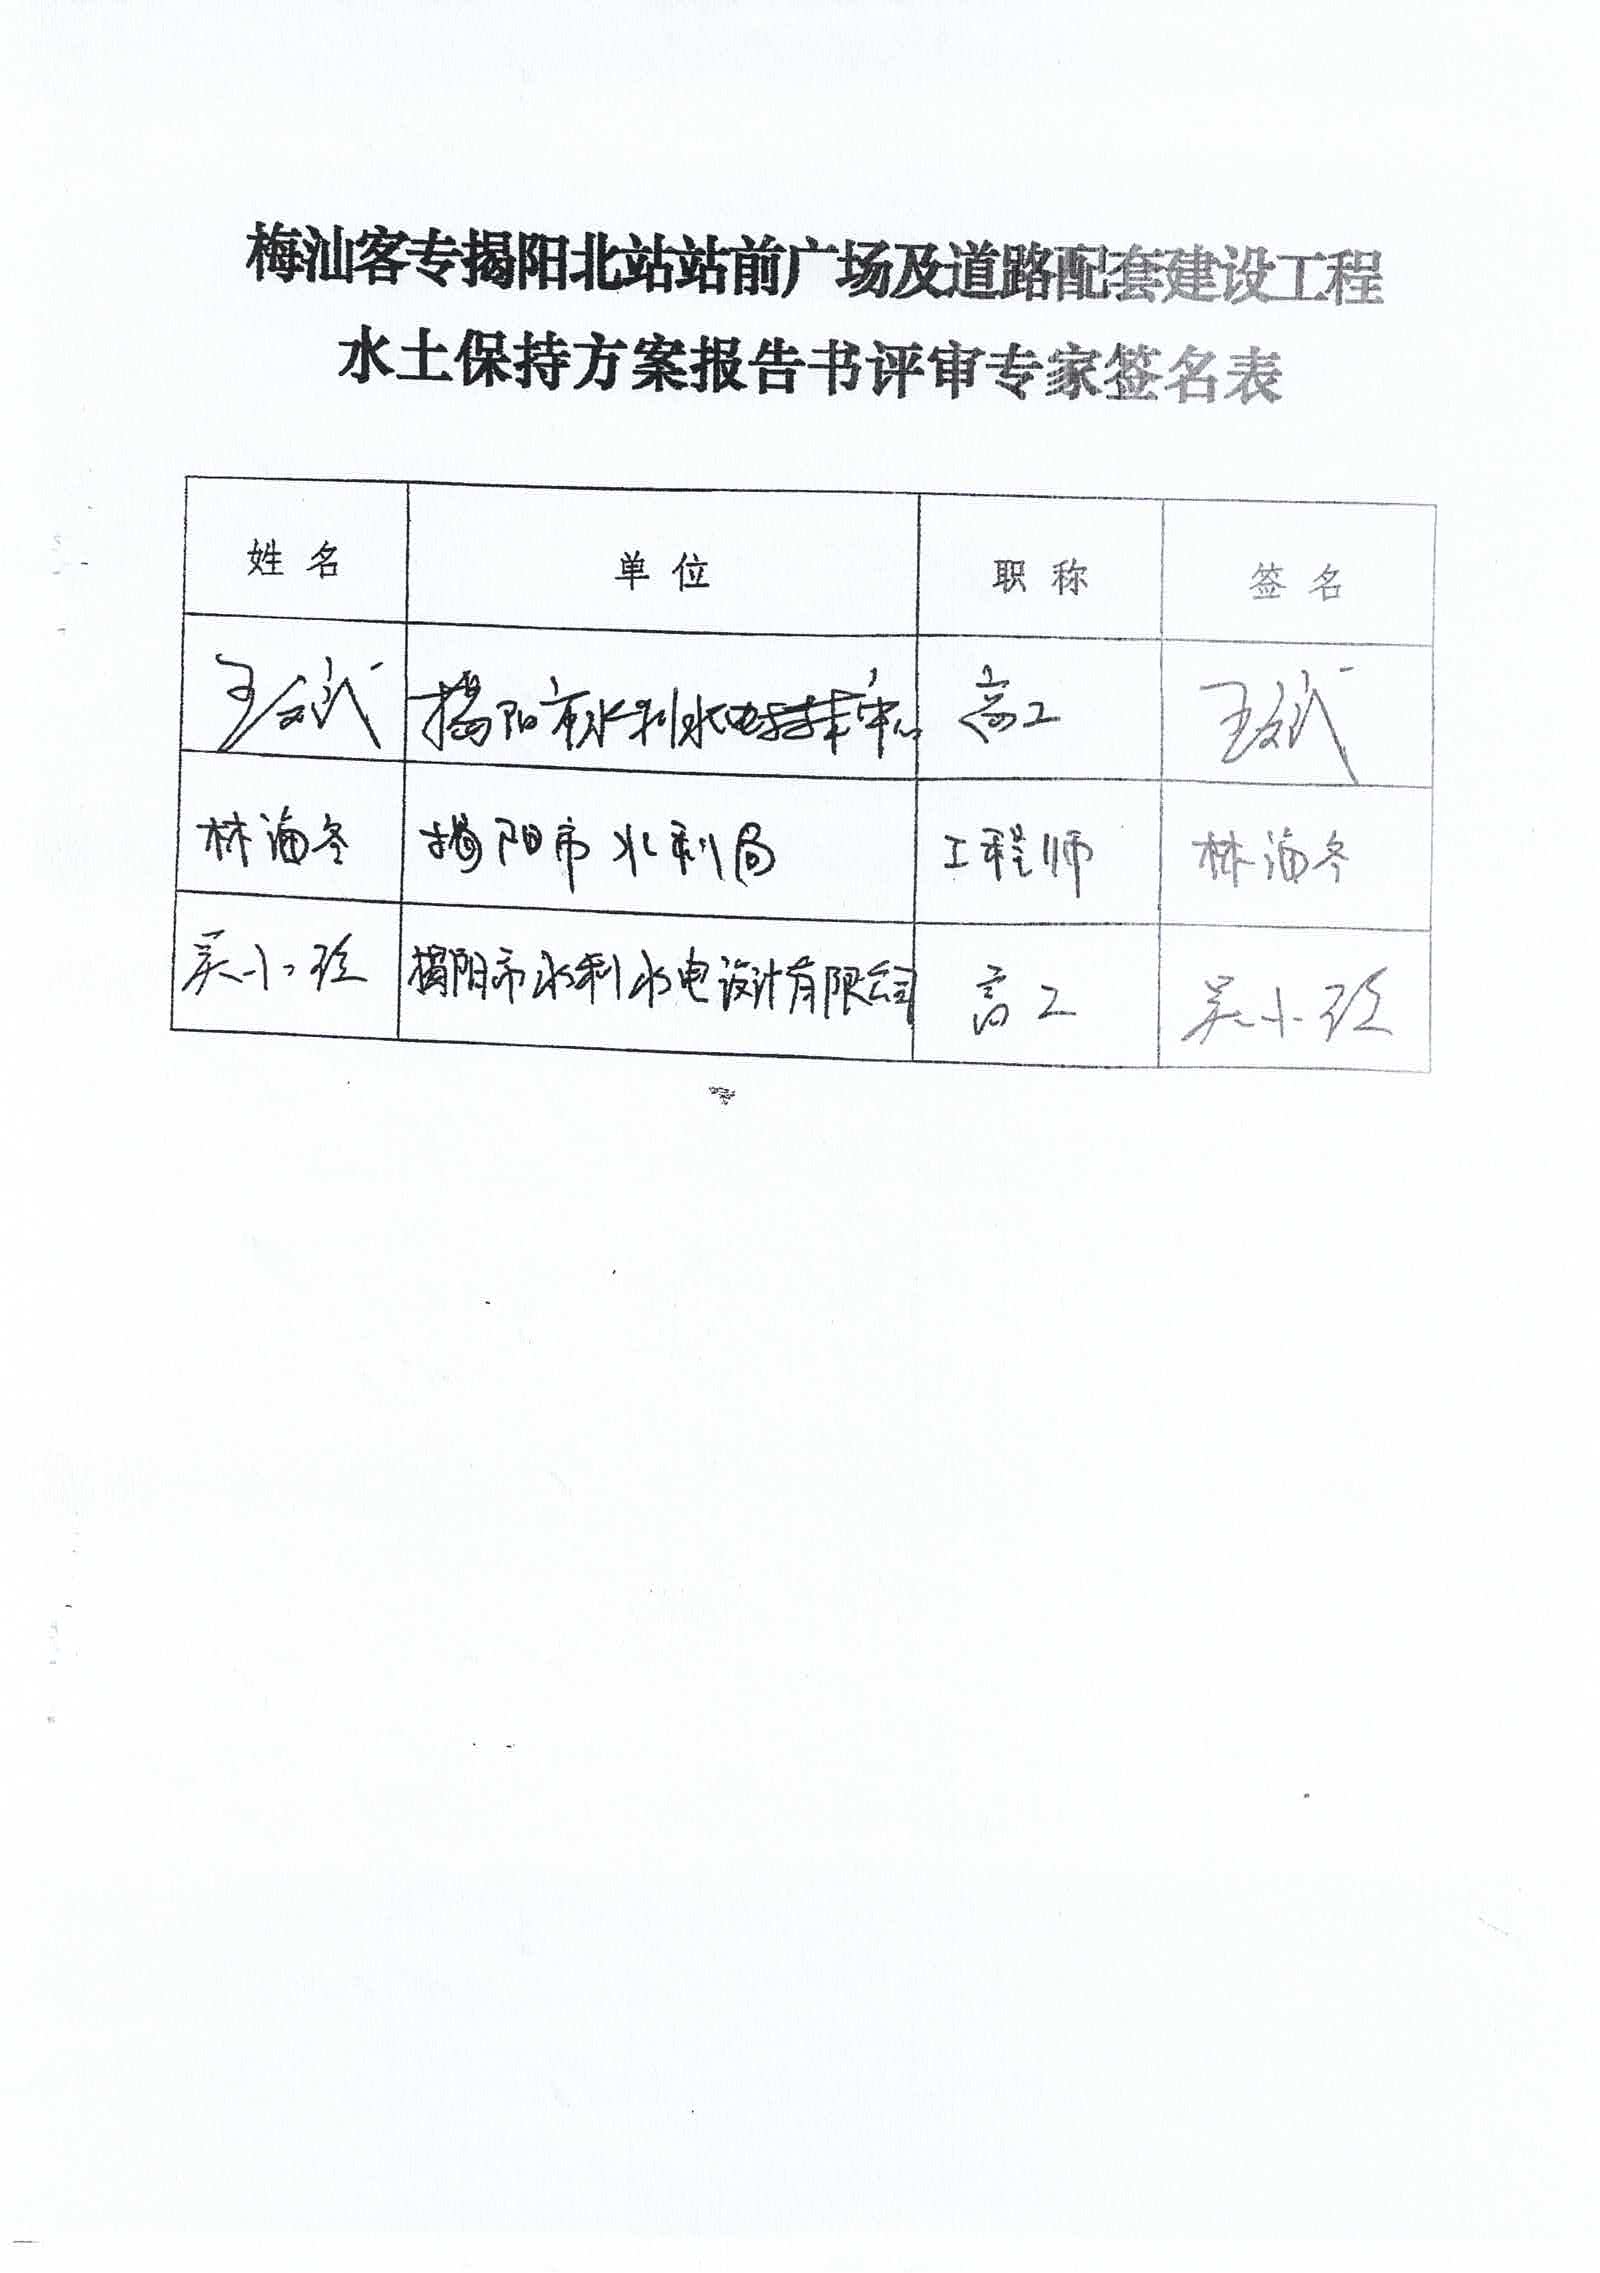 梅汕客专揭阳北站站前广场及道路配套建设工程
水土保持方案报告书评审专家签名表
姓 名 单 位 职 称 签 名
王 揭阳市水利水电技术中心 高工 王
林海冬 揭阳市水利局 工程师 林海冬
吴小 揭阳市水利水电设计有限公司 高工 吴小